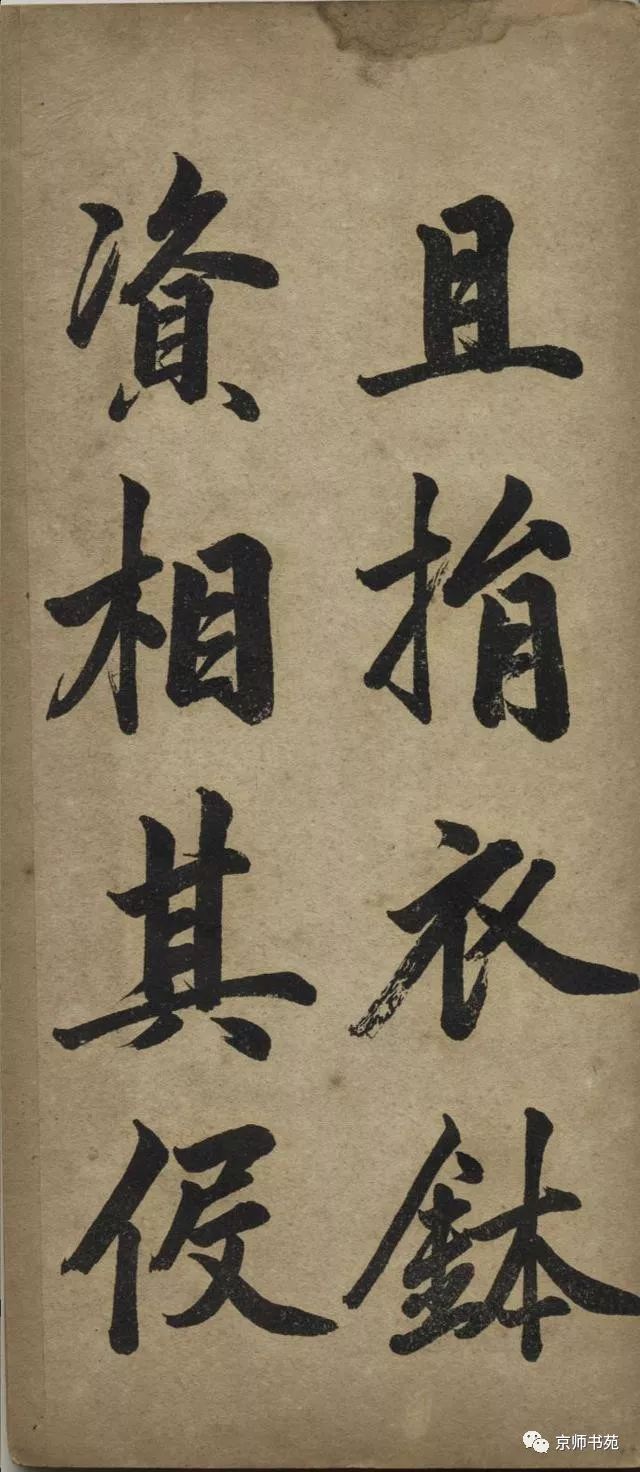 且捐衣鉢
資相其伇
京师书苑